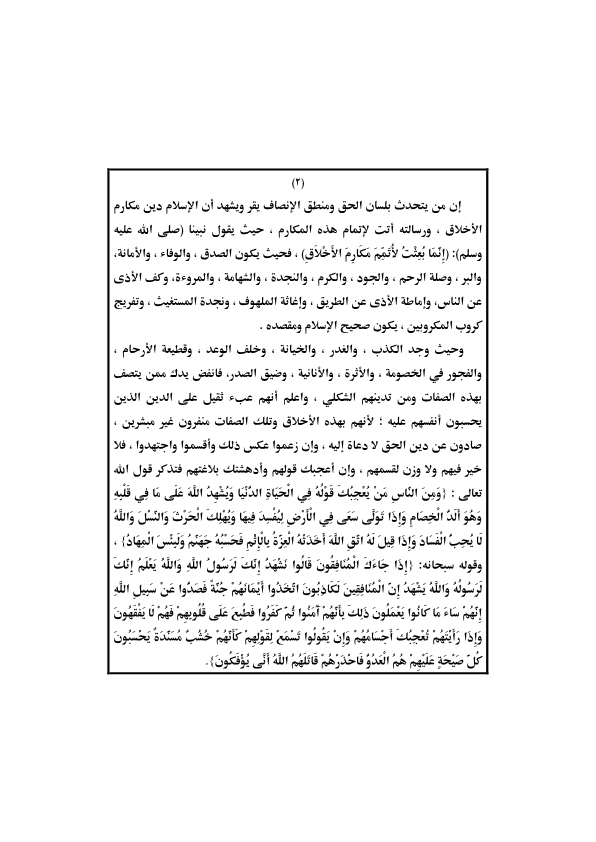 (٢)
إن من يتحدث بلسان الحق ومنطق الإنصاف يقر ويشهد أن الإسلام دين مكارم
الأخلاق ، ورسالته أتت لإتمام هذه المكارم ، حيث يقول نبينا (صلى الله عليه
وسلم): (إِنَّمَا بُعِثْتُ لأُتَمِّمَ مَكَارِمَ الأَخْلاَقِ) ، فحيث يكون الصدق ، والوفاء ، والأمانة،
والبر ، وصلة الرحم ، والجود ، والكرم ، والنجدة ، والشهامة ، والمروءة، وكف الأذى
عن الناس، وإماطة الأذى عن الطريق ، وإغاثة الملهوف ، ونجدة المستغيث ، وتفريج
كروب المكروبين ، يكون صحيح الإسلام ومقصده .
وحيث وجد الكذب ، والغدر ، والخيانة ، وخلف الوعد ، وقطيعة الأرحام ،
والفجور في الخصومة ، والأثرة ، والأنانية ، وضيق الصدر، فانفض يدك ممن يتصف
بهذه الصفات ومن تدينهم الشكلي ، واعلم أنهم عبء ثقيل على الدين الذين
يحسبون أنفسهم عليه ؛ لأنهم بهذه الأخلاق وتلك الصفات منفرون غير مبشرين ،
صادون عن دين الحق لا دعاة إليه ، وإن زعموا عكس ذلك وأقسموا واجتهدوا ، فلا
خير فيهم ولا وزن لقسمهم ، وإن أعجبك قولهم وأدهشتك بلاغتهم فتذكر قول الله
تعالى : {وَمِنَ النَّاسِ مَنْ يُعْجِبُكَ قَوْلُهُ فِي الْحَيَاةِ الدُّنْيَا وَيُشْهِدُ اللَّهَ عَلَى مَا فِي قَلْبِهِ
وَهُوَ أَلَدُّ الْخِصَامِ وَإِذَا تَوَلَّى سَعَى فِي الْأَرْضِ لِيُفْسِدَ فِيهَا وَيُهْلِكَ الْحَرْثَ وَالنَّسْلَ وَاللَّهُ
لَا يُحِبُّ الْفَسَادَ وَإِذَا قِيلَ لَهُ اتَّقِ اللَّهَ أَخَذَتْهُ الْعِزَّةُ بِالْإِثْمِ فَحَسْبُهُ جَهَنَّمُ وَلَبِئْسَ الْمِهَادُ} ،
وقوله سبحانه: {إِذَا جَاءَكَ الْمُنَافِقُونَ قَالُوا نَشْهَدُ إِنَّكَ لَرَسُولُ اللَّهِ وَاللَّهُ يَعْلَمُ إِنَّكَ
لَرَسُولُهُ وَاللَّهُ يَشْهَدُ إِنَّ الْمُنَافِقِينَ لَكَاذِبُونَ اتَّخَذُوا أَيْمَانَهُمْ جُنَّةً فَصَدُّوا عَنْ سَبِيلِ اللَّهِ
إِنَّهُمْ سَاءَ مَا كَانُوا يَعْمَلُونَ ذَلِكَ بِأَنَّهُمْ آمَنُوا ثُمَّ كَفَرُوا فَطُبِعَ عَلَى قُلُوبِهِمْ فَهُمْ لَا يَفْقَهُونَ
وَإِذَا رَأَيْتَهُمْ تُعْجِبُكَ أَجْسَامُهُمْ وَإِنْ يَقُولُوا تَسْمَعْ لِقَوْلِهِمْ كَأَنَّهُمْ خُشُبٌ مُسَنَّدَةٌ يَحْسَبُونَ
كُلَّ صَيْحَةٍ عَلَيْهِمْ هُمُ الْعَدُوُّ فَاحْذَرْهُمْ قَاتَلَهُمُ اللَّهُ أَنَّى يُؤْفَكُونَ}.